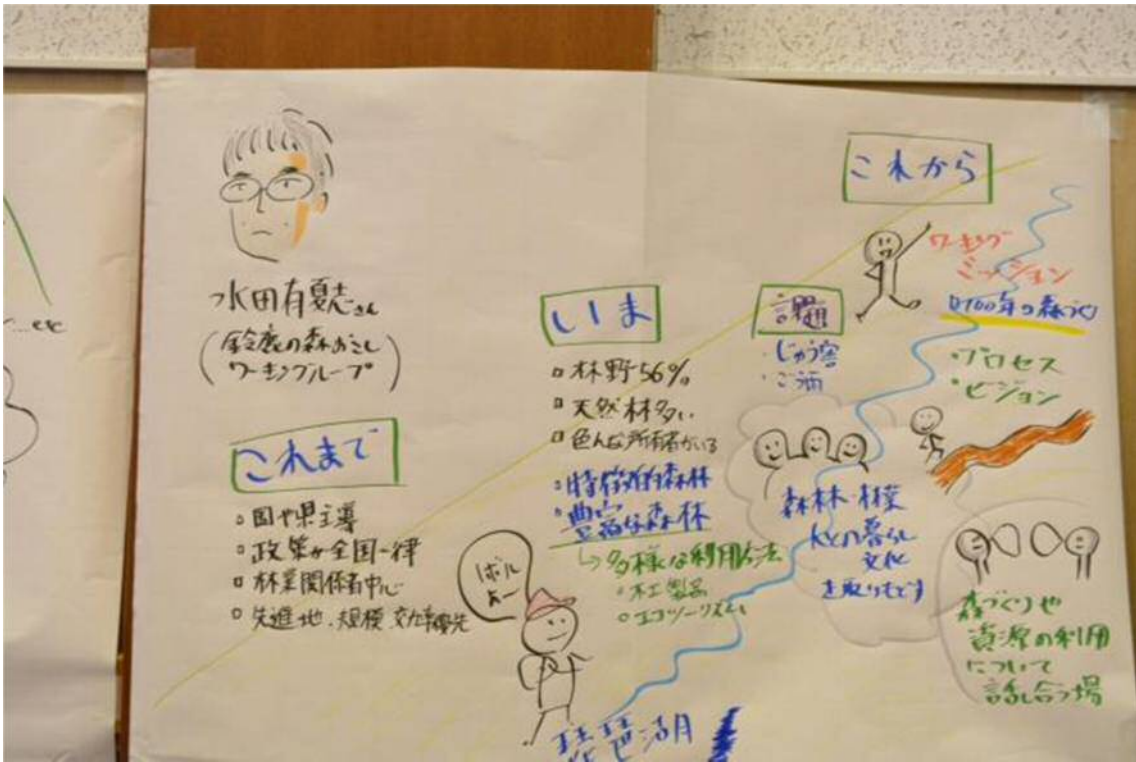 …etc
水田有夏志さん
(鈴鹿の森おこし
ワーキンググループ)
これまで
国や県主導
政策が全国一律
林業関係者中心
先進地、規模、効率優先
いま
林野56%
天然林多い
色んな所有者がいる
・特徴的森林
・豊富な森林
↳多様な利用方法
・木工製品
・エコツーリズム
琵琶湖
課題
・じゅう害
・ご酒
森林・林業
との暮らし
文化
を取りもどす
これから
ワーキング
ミッション
100年の森づくり
・プロセス
・ビジョン
森づくりや
資源の利用
について
話し合う場